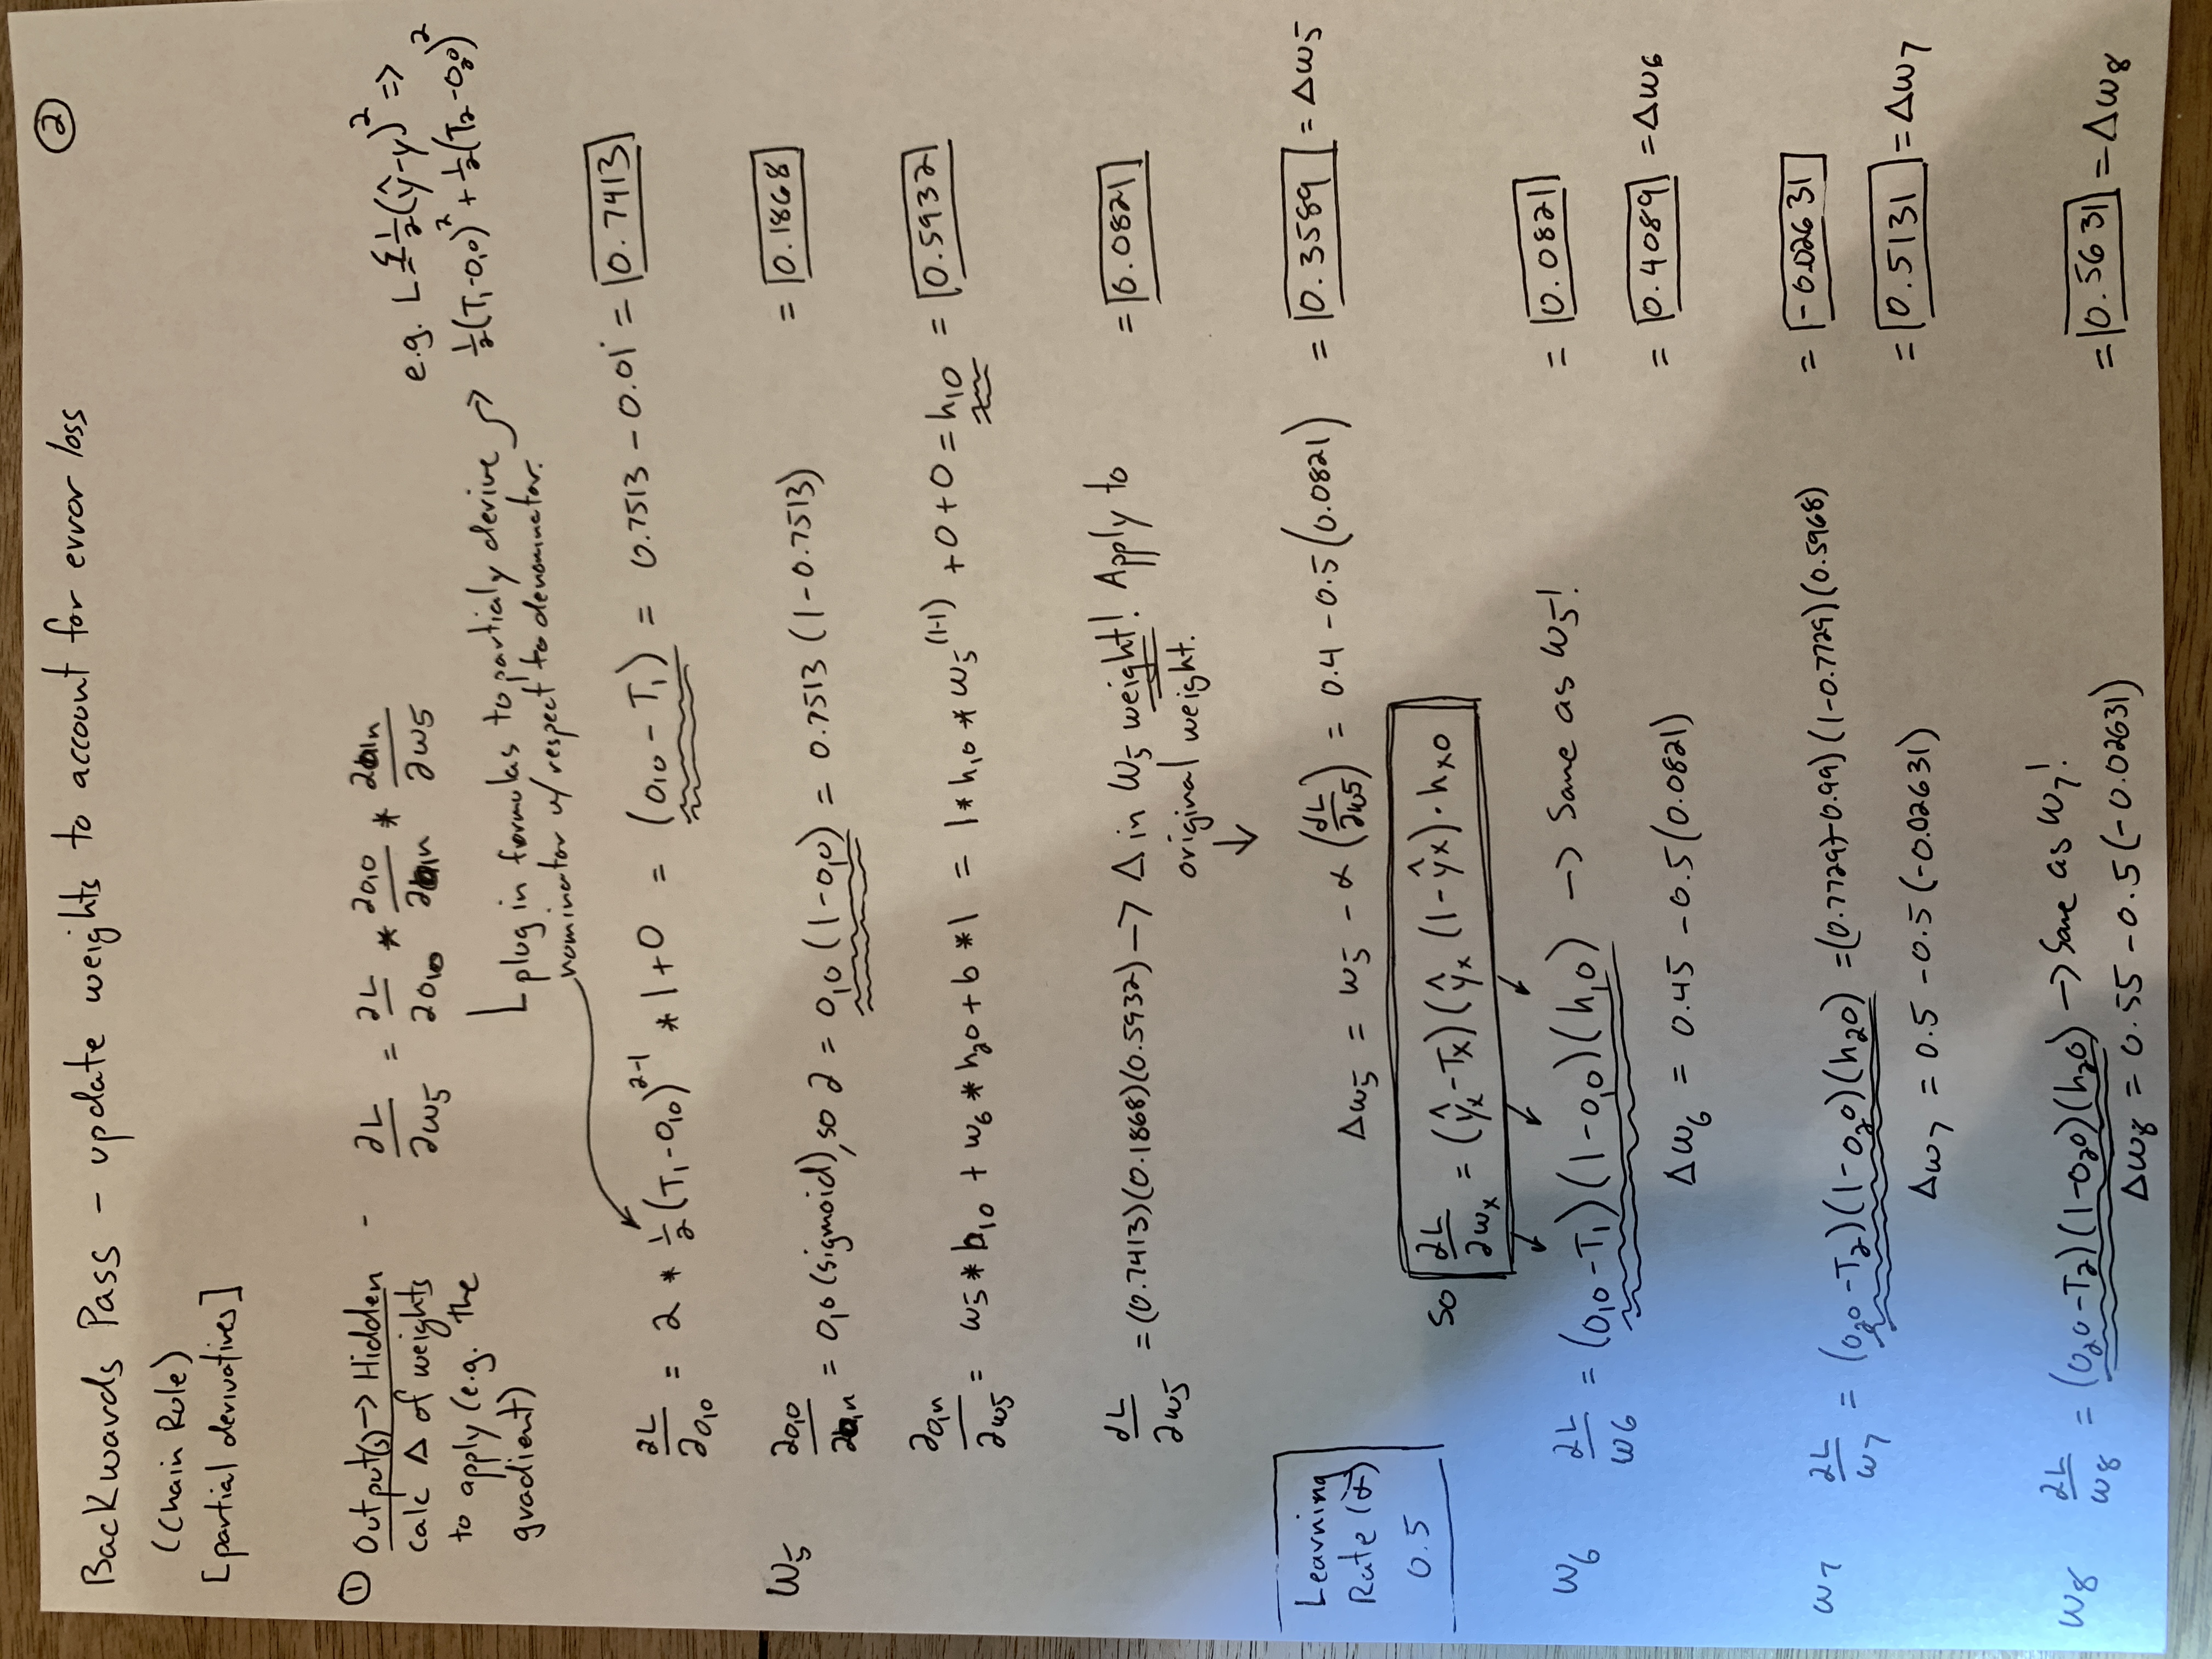 ②
Backwards Pass - update weights to account for error loss
(Chain Rule)
[partial derivatives]
① Output(s) → Hidden - ∂L/∂w5 = ∂L/∂o10 * ∂o10/∂o1n * ∂o1n/∂w5
calc Δ of weights
to apply (e.g. the
gradient)
e.g. L = Σ½(ŷ-y)² =>
½(T1-O10)² + ½(T2-O20)²
plug in formulas to partialy derive →
nominator w/ respect to denominator.
∂L/∂o10 = 2 * ½(T1-O10)^2-1 * 1+0 = (O10 - T1) = 0.7513 - 0.01 = 0.7413
W5 ∂o10/∂o1n = O10 (sigmoid), so ∂ = O10 (1-O10) = 0.7513 (1-0.7513) = 0.1868
∂o1n/∂w5 = w5 * h10 + w6 * h20 + b * 1 = 1 * h10 * w5^(1-1) + 0 + 0 = h10 = 0.5932
dL/∂w5 = (0.7413)(0.1868)(0.5932) → Δ in W5 weight! Apply to = 0.0821
original weight.
↓
Learning
Rate (α)
0.5
Δw5 = w5 - α (dL/∂w5) = 0.4 - 0.5 (0.0821) = 0.3589 = Δw5
so ∂L/∂wx = (ŷx - Tx) (ŷx (1 - ŷx) · hx0
W6 ∂L/w6 = (O10 - T1) (1 - O10) (h10) → Same as W5! = 0.0821
Δw6 = 0.45 - 0.5 (0.0821) = 0.4089 = Δw6
w7 ∂L/w7 = (O20 - T2) (1 - O20) (h20) = (0.7729 - 0.99) (1 - 0.7729) (0.5968) = -0.02631
Δw7 = 0.5 - 0.5 (-0.02631) = 0.5131 = Δw7
W8 ∂L/w8 = (O20 - T2) (1 - O20) (h20) → Same as W7!
Δw8 = 0.55 - 0.5 (-0.02631) = 0.5631 = Δw8